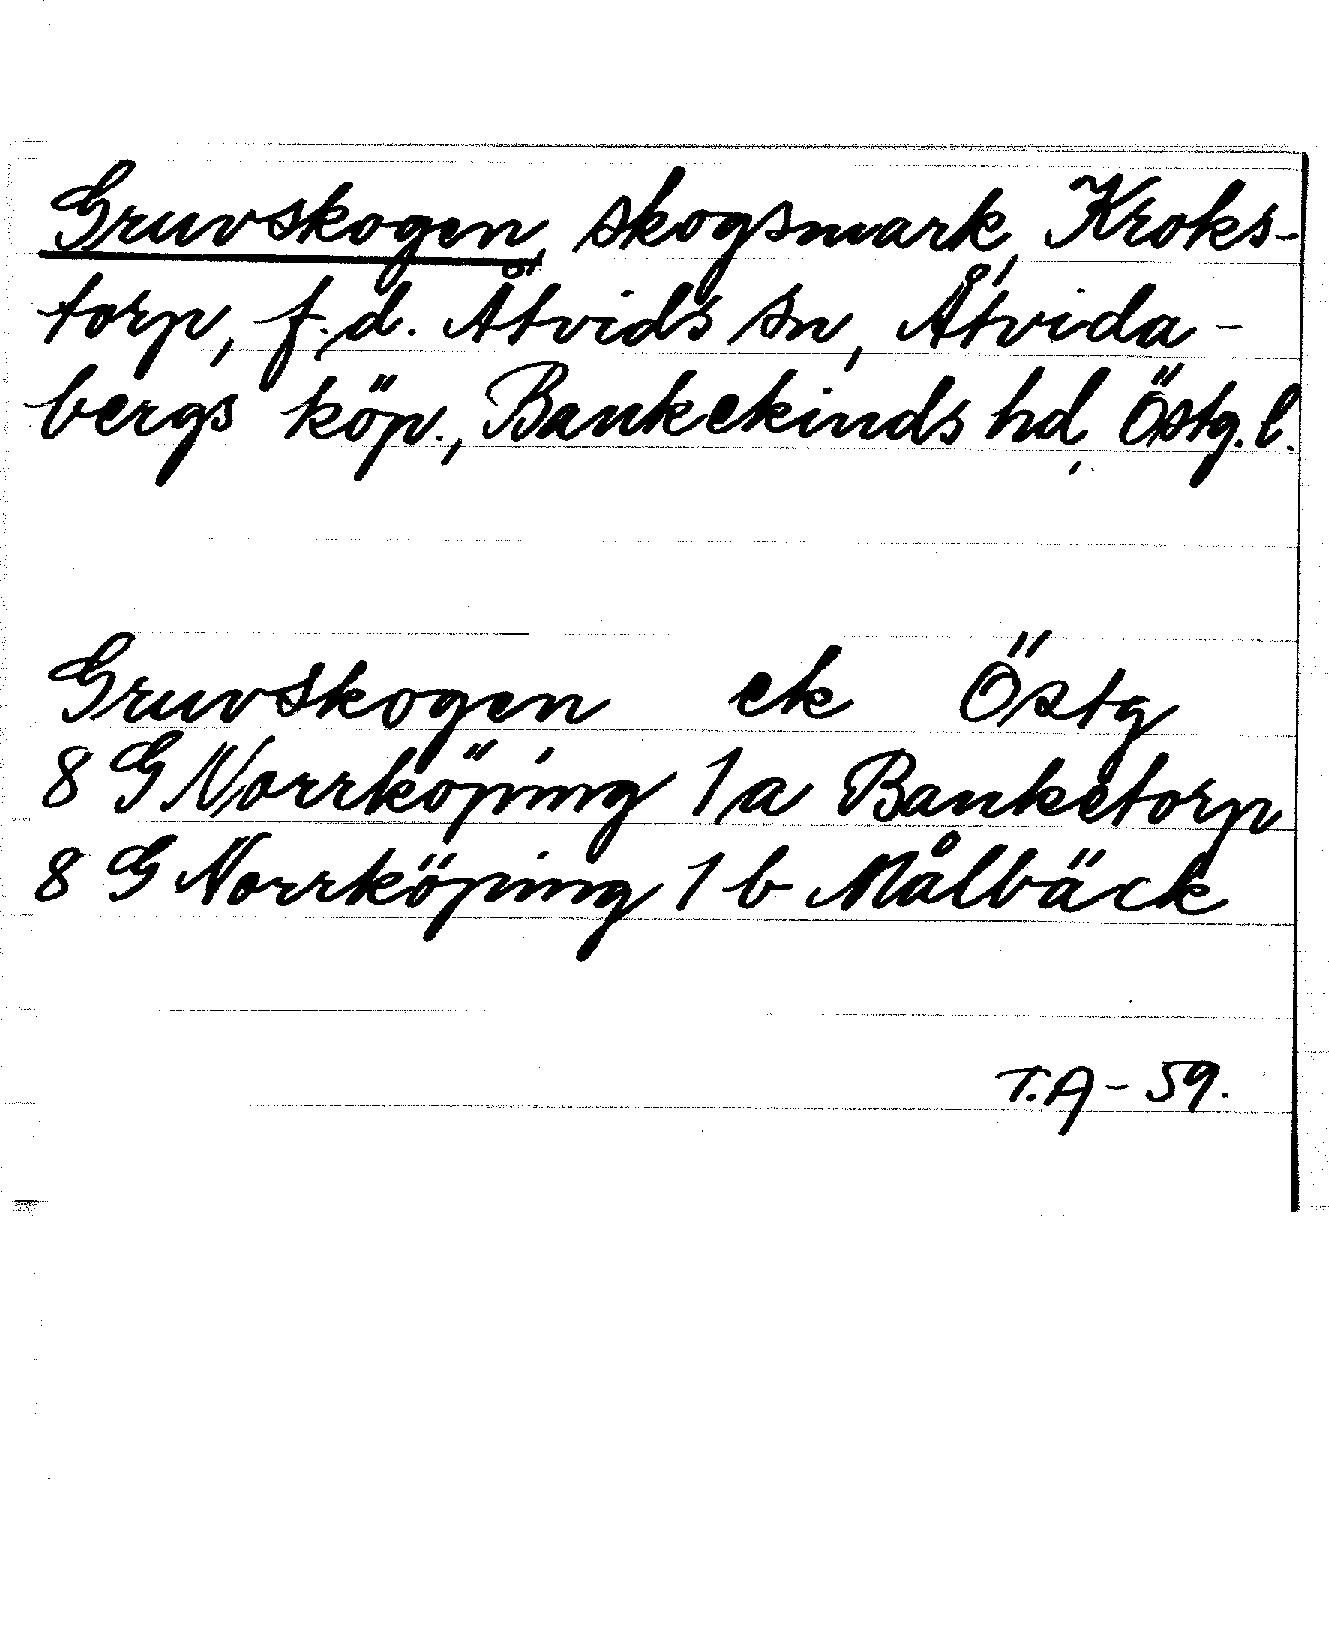 Gruvskogen, skogsmark, Kroks-
torp, f.d. Åtvids sn, Åtvida-
bergs köp., Bankekinds hd, Östg.l.
Gruvskogen ek Östg
8 G Norrköping 1a Banketorp
8 G Norrköping 1 b Målbäck
T.A - 59.